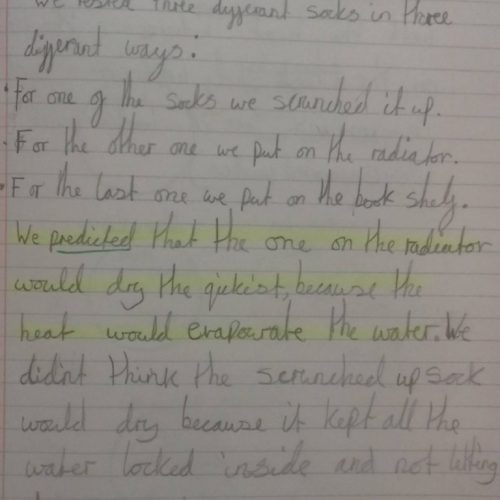 We tested three dyfferant socks in three
differant ways:
• For one of the socks we scrunched it up.
• For the other one we put on the radiator.
• For the last one we put on the book shelf.
We predicted that the one on the radiator
would dry the qickist, because the
heat would evapourate the water. We
didn't think the scrunched up sock
would dry because it kept all the
water locked inside and not letting